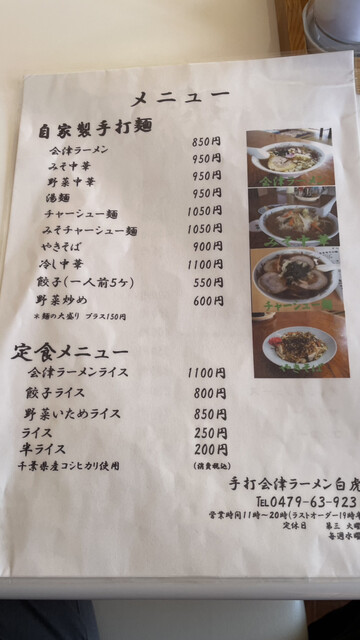 メニュー
自家製手打麺
会津ラーメン 850円
みそ中華 950円
野菜中華 950円
湯麺 950円
チャーシュー麺 1050円
みそチャーシュー麺 1050円
やきそば 900円
冷し中華 1100円
餃子(一人前5ケ) 550円
野菜炒め 600円
*麺の大盛り プラス150円
定食メニュー
会津ラーメンライス 1100円
餃子ライス 800円
野菜いためライス 850円
ライス 250円
半ライス 200円
千葉県産コシヒカリ使用 (消費税込)
手打会津ラーメン白虎
TEL0479-63-923
営業時間11時～20時(ラストオーダー19時半
定休日 第三 火曜
毎週水曜